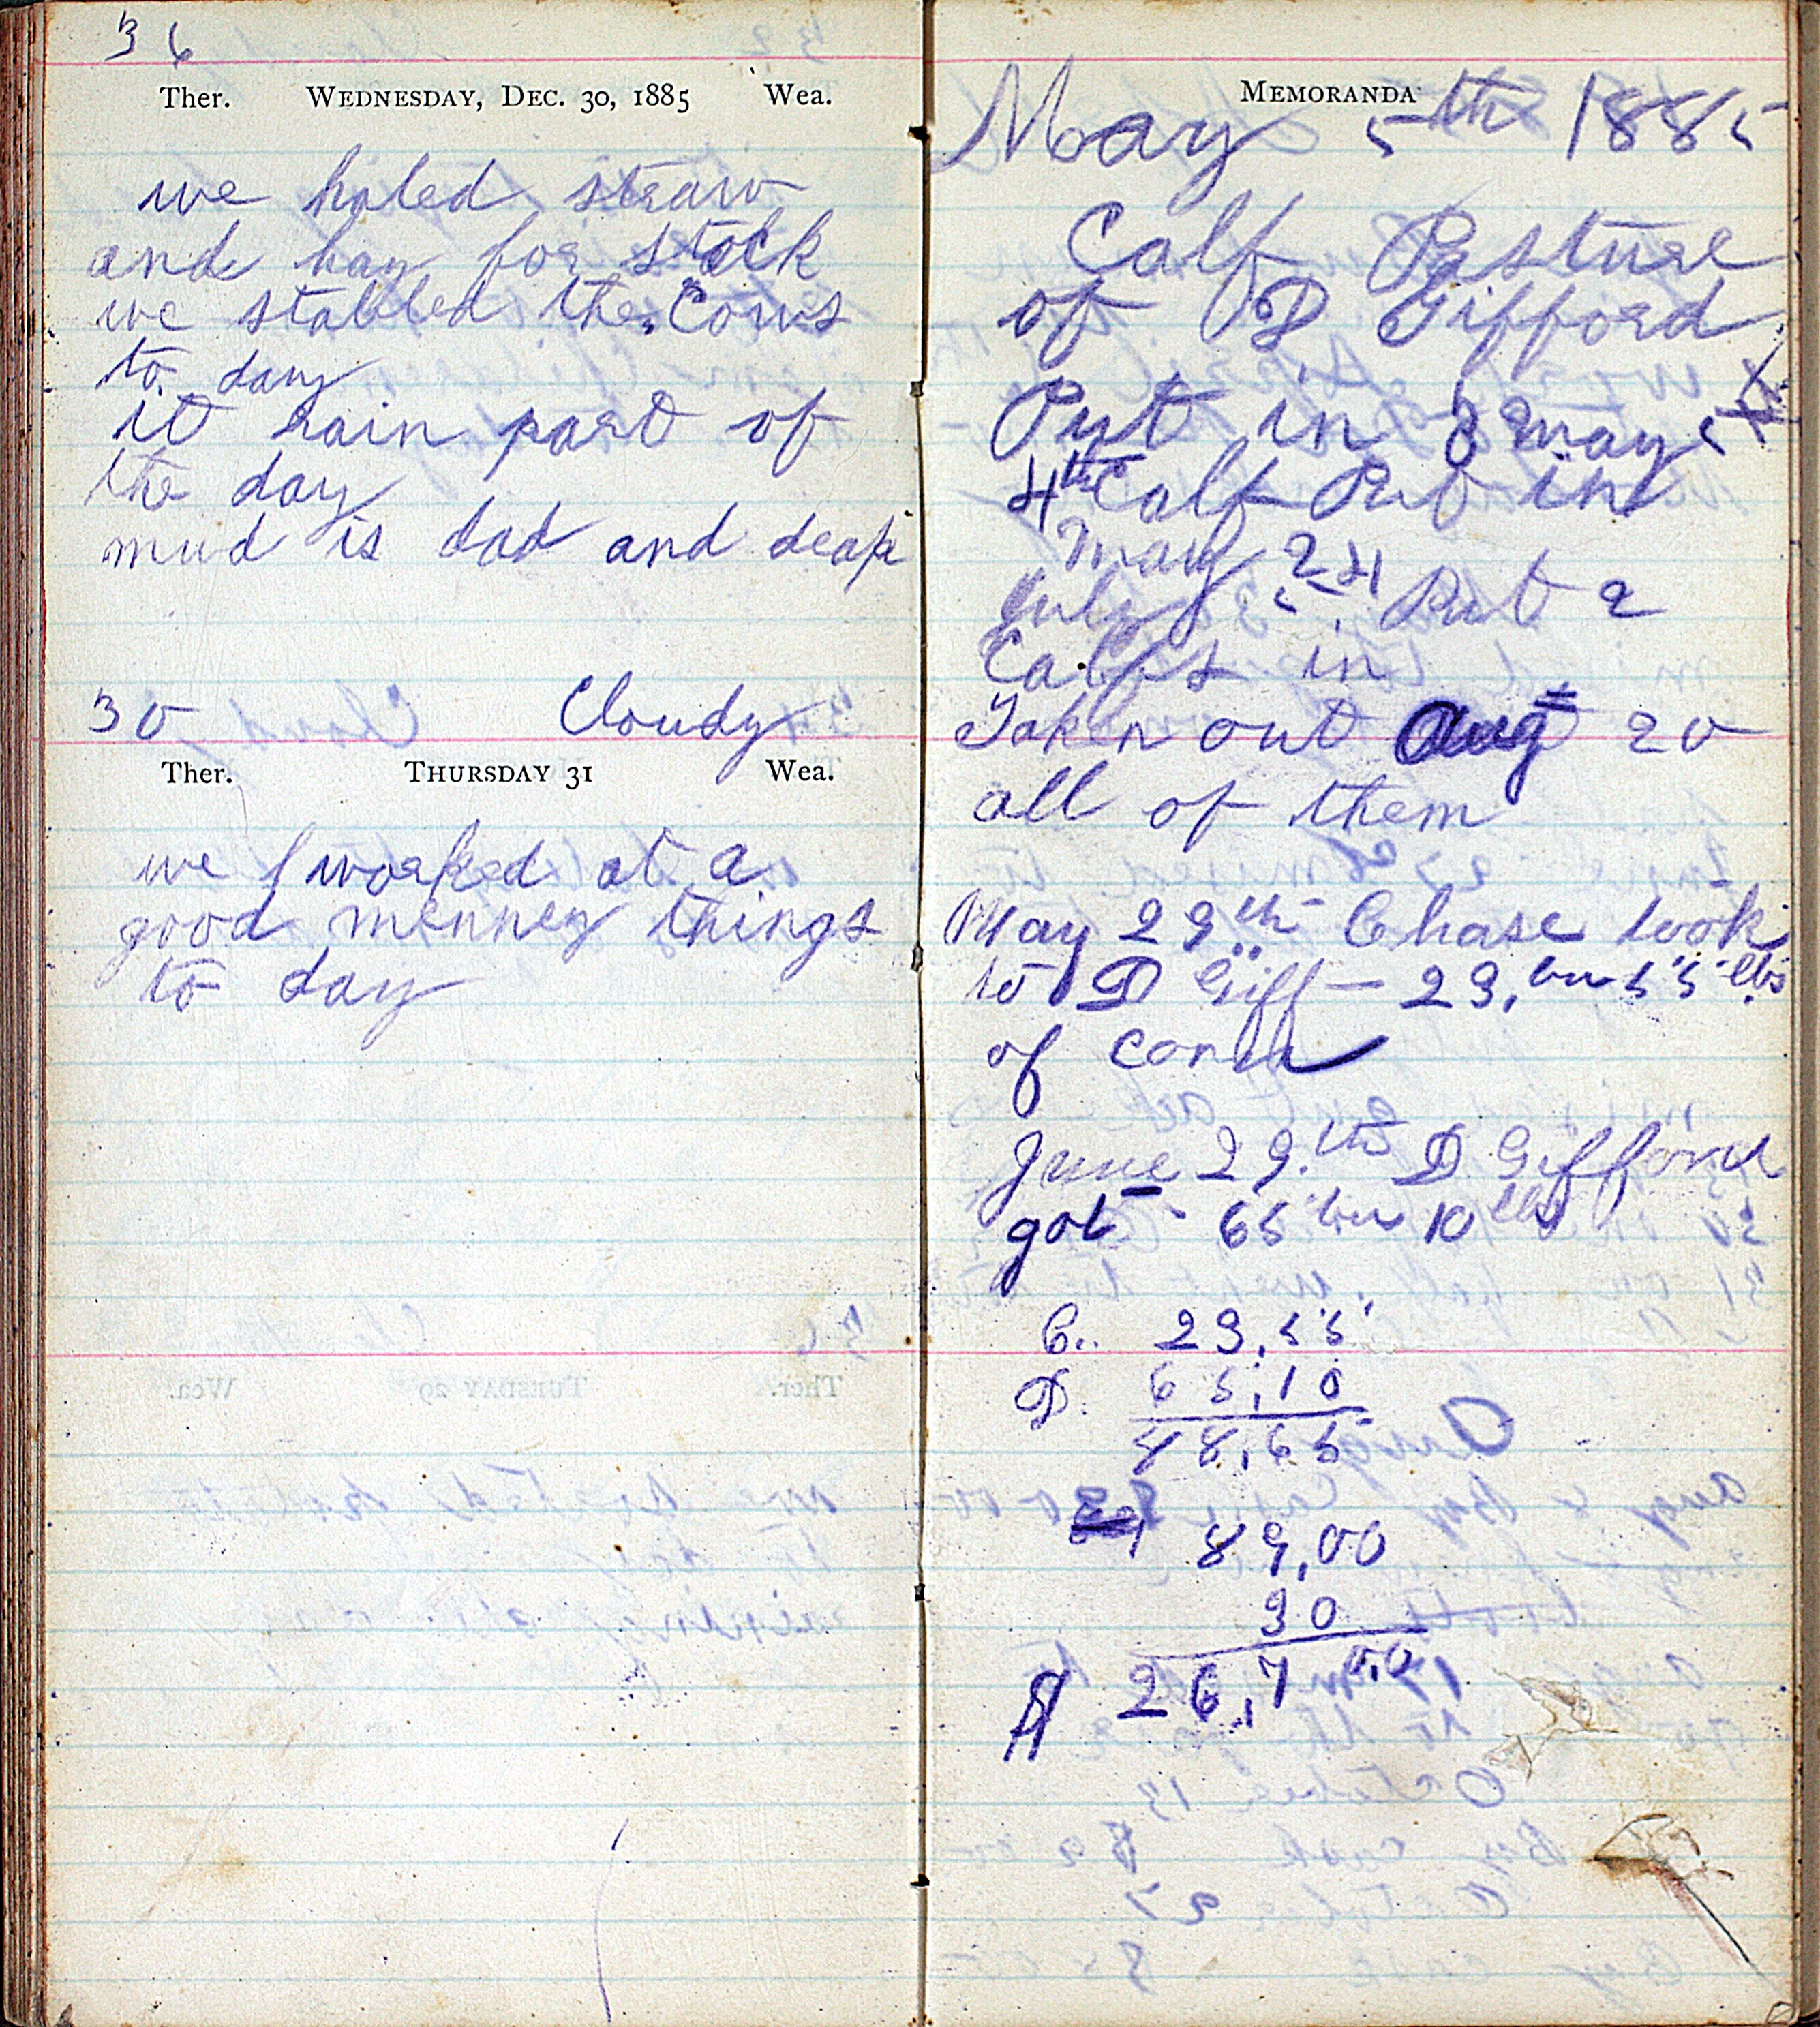 36
Ther. WEDNESDAY, DEC. 30, 1885 Wea.
we haled straw
and hay for stock
we stabled the Cows
to day
it rain part of
the day
mud is bad and deap
30 Cloudy
Ther. THURSDAY 31 Wea.
we worked at a
good menney things
to day
MEMORANDA
May 5th 1885
Calf Pasture
of D Gifford
Put in 3 may 5
4th Calf Put in
May 24
July 5. Put 2
Calfs in
Taken out aug 20
all of them
May 29th Chase took
to D Giff - 23, bu 55 lbs
of corn
June 29.th D Gifford
got - 65 bu 10 lbs
C.. 23,55
D. 65,10
88,65
89,00
30
26,7 0,0